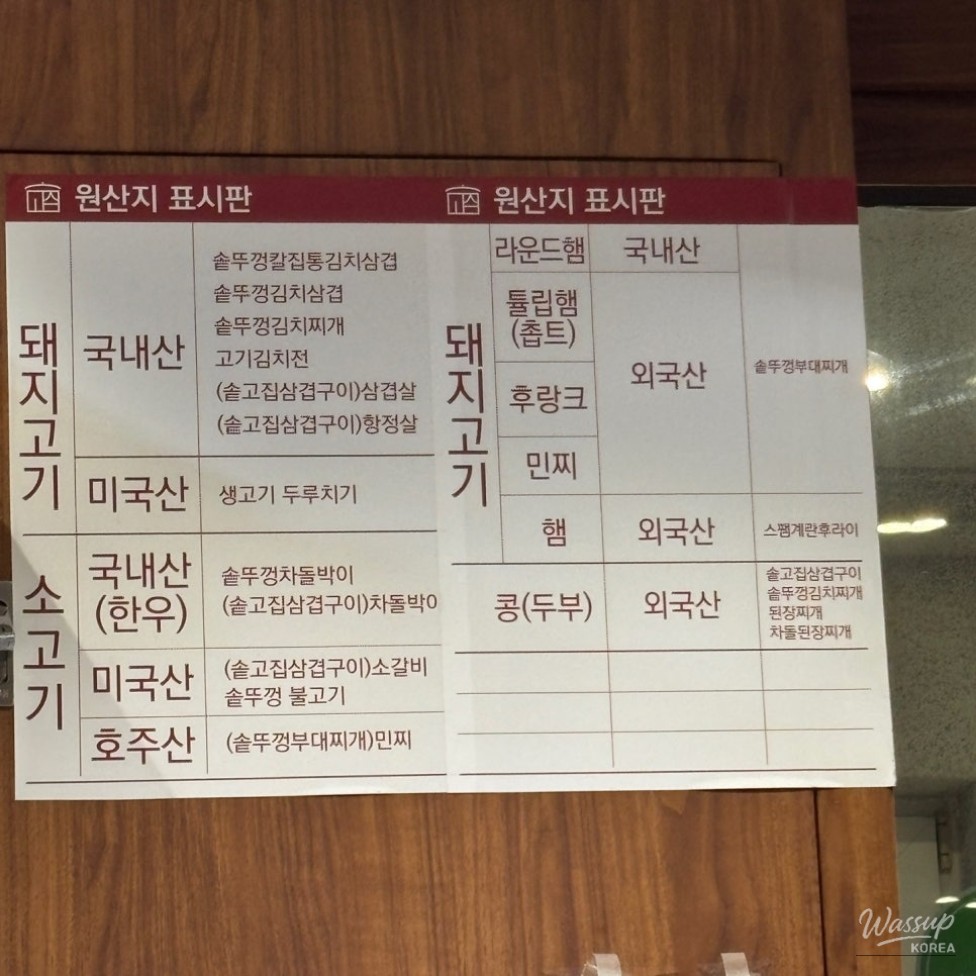 원산지 표시판
돼지고기
국내산
솥뚜껑칼집통김치삼겹
솥뚜껑김치삼겹
솥뚜껑김치찌개
고기김치전
(솥고집삼겹구이)삼겹살
(솥고집삼겹구이)항정살
미국산
생고기 두루치기
소고기
국내산
(한우)
솥뚜껑차돌박이
(솥고집삼겹구이)차돌박이
미국산
(솥고집삼겹구이)소갈비
솥뚜껑 불고기
호주산
(솥뚜껑부대찌개)민찌
원산지 표시판
돼지고기
라운드햄
국내산
튤립햄
(촙트)
외국산
솥뚜껑부대찌개
후랑크
민찌
햄
외국산
스팸계란후라이
콩(두부)
외국산
솥고집삼겹구이
솥뚜껑김치찌개
된장찌개
차돌된장찌개
Wassup
KOREA